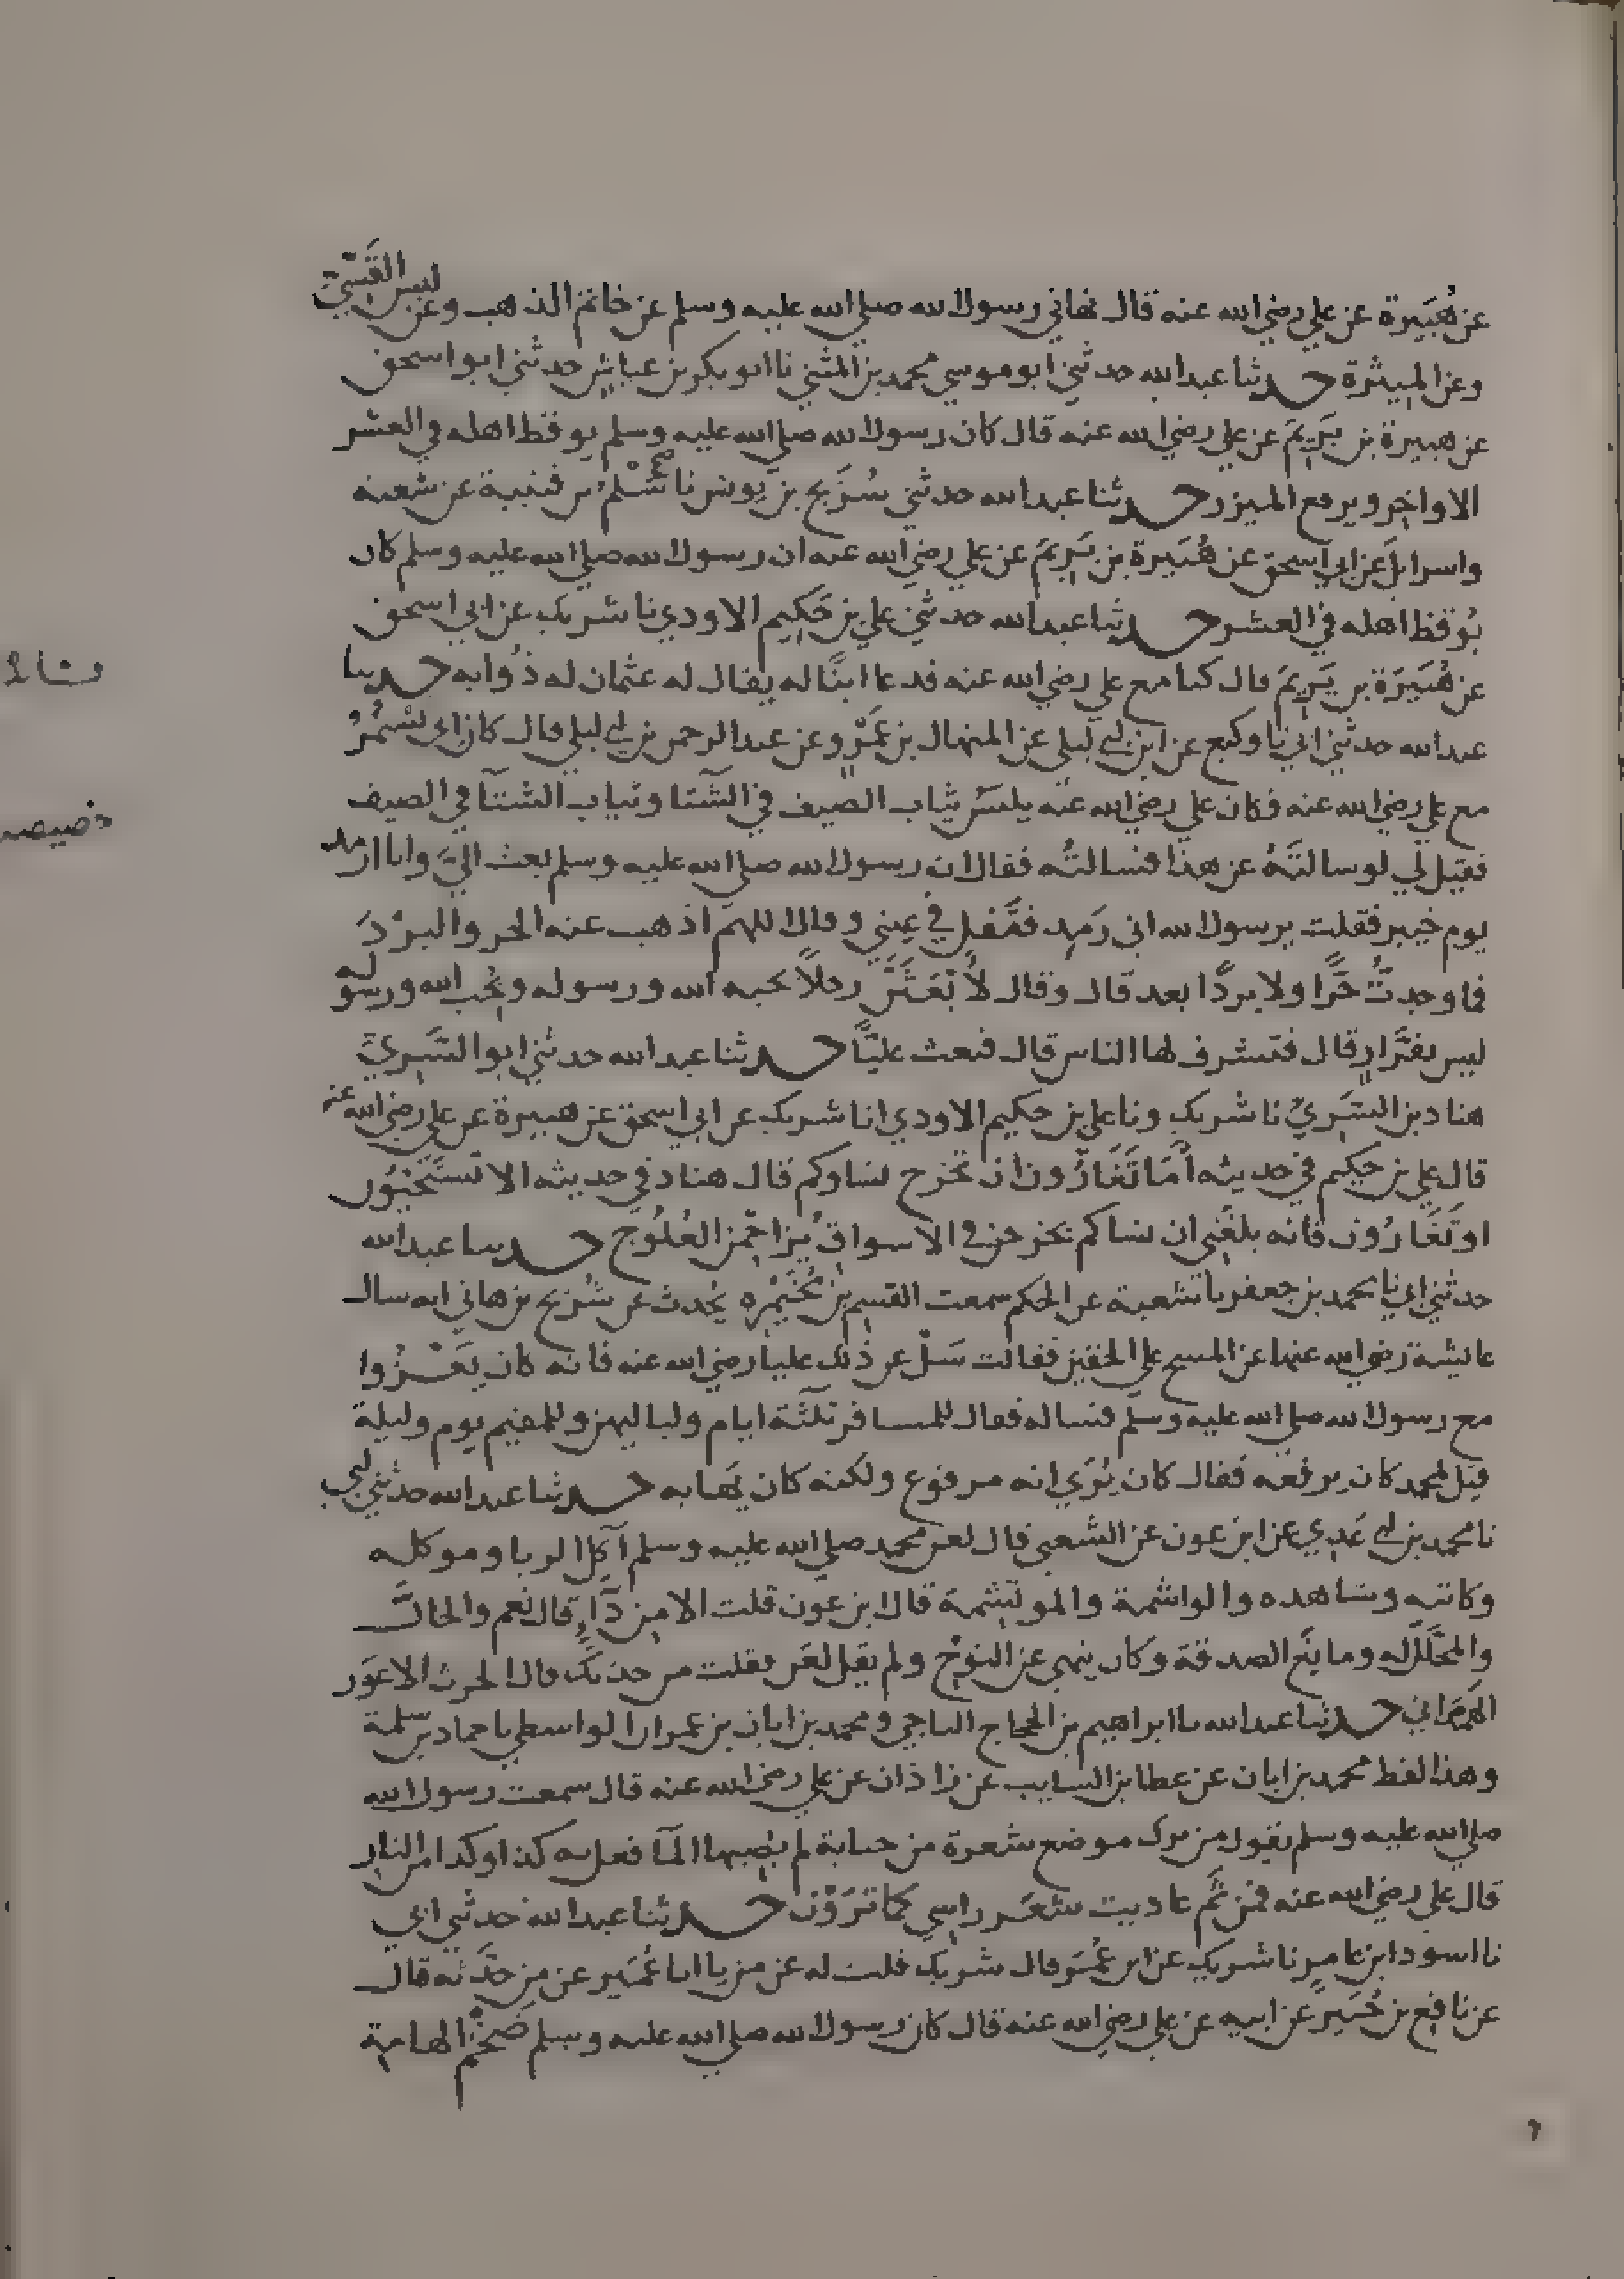 عن هُبَيرة عن علي رضي الله عنه قال نهاني رسول الله صلي الله عليه وسلم عن خاتم الذهب وعن لبس القَسِّيّ
وعن الميثرة حدثنا عبد الله حدثني ابو موسي محمد بن المثني نا ابو بكر بن عياش حدثني ابو اسحق
عن هبيرة بن يَرِيمَ عن علي رضي الله عنه قال كان رسول الله صلي الله عليه وسلم يوقظ اهله في العشر
الاواخر ويرفع الميزر حدثنا عبد الله حدثني سُرَيج بن يونس نا سَلْم بن قتيبة عن شعبة
واسرايل عن ابي اسحق عن هُبَيرة بن يَرِيمَ عن علي رضي الله عنه ان رسول الله صلي الله عليه وسلم كان
يُوقظ اهله في العشر حدثنا عبد الله حدثني علي بن حَكِيم الاودي نا شريك عن ابي اسحق
عن هُبَيرَة بن يَرِيمَ قال كنا مع علي رضي الله عنه فدعا ابنًا له يقال له عثمان له ذُوابه حدثنا
عبد الله حدثني ابي نا وكيع عن ابن ابي ليلي عن المنهال بن عَمْرو عن عبد الرحمن بن ابي ليلي قال كان ابي يَسْمُرُ
مع علي رضي الله عنه فكان علي رضي الله عنه يلبسُ ثياب الصيف في الشتا وثياب الشتآ في الصيف
فقيل لي لو سالتَهُ عن هذا فسالتُه فقال ان رسول الله صلي الله عليه وسلم بعث اليَّ وانا ارمد
يوم خيبر فقلت يرسول الله اني رَمِد فتَفل في عيني وقال اللهمَّ اذهب عنه الحر والبرْدَ
فما وجدتُ حَرًّا ولا بردًّا بعد قال وقال لاَبْعَثَنَّ رجلاً يحبه الله ورسوله ويُحِب الله ورسوله
ليس بفَرَّارٍ قال فتشرف لها الناس قال فبعث عليًّا حدثنا عبد الله حدثني ابو السَّرِيّ
هناد بن السَّرِيّ نا شريك ونا علي بن حكيم الاودي انا شريك عن ابي اسحق عن هبيرة عن علي رضي الله عنه
قال علي بن حكيم في حديثه اَمَا تَغَارُون ان تخرج نساوكم قال هناد في حديثه الا تَسْتَحْيُون
او تَغَارُون فانه بلغَنِي ان نساكم يخرجن في الاسواق يُزَاحِمْنَ العُلُوجَ حدثنا عبد الله
حدثني ابي نا محمد بن جعفر نا شعبة عن الحكم سمعت القسم بن مُخَيْمِرَه يُحدث عن شُرَيح بن هاني انه سال
عايشة رضي الله عنها عن المسح علي الخفين فقالت سَلْ عن ذلك عليا رضي الله عنه فانه كان يَغْزُوا
مع رسول الله صلي الله عليه وسلم فساله فقال للمسافر ثلَثَة ايام ولياليهن وللمقيم يوم وليلة
قيل لمحمد كان يرفعه فقال كان يُرَي انه مرفوع ولكنه كان يَهَابه حدثنا عبد الله حدثني ابي
نا محمد بن ابي عَدِي عن ابن عون عن الشعبي قال لعن محمد صلي الله عليه وسلم آكل الربا وموكله
وكاتبه وشاهده والواشمة والموتشمة قال ابن عون قلت الا مِن دَآءٍ قال نعم والحالَّ
والمحَلَّلَ له ومانِعَ الصدقة وكان ينهي عن النَوْحِ ولم يقل لعَنَ فقلت من حدثك قال الحرث الاعوَر
الهَمْدَاني حدثنا عبد الله نا ابراهيم بن الحجاج الناجي ومحمد بن ابان بن عمران الواسطي نا حماد بن سلمة
وهذا لفظ محمد بن ابان عن عطا بن السايب عن زاذان عن علي رضي الله عنه قال سمعت رسول الله
صلي الله عليه وسلم يقول من ترك موضع شعرة من جنابة لم يُصِبها المآ فعل به كذا وكذا من النار
قال علي رضي الله عنه فمن ثَمَّ عاديت شعَر راسي كما تَرَوْنَ حدثنا عبد الله حدثني ابي
نا اسود ابن عامر نا شريك عن ابن عُمَير قال شريك قلت له عن من يا ابا عُمَير عن من حدَّثه قال
عن نافع بن جُبَيرٍ عن ابيه عن علي رضي الله عنه قال كان رسول الله صلي الله عليه وسلم ضَخْمَ الهامة